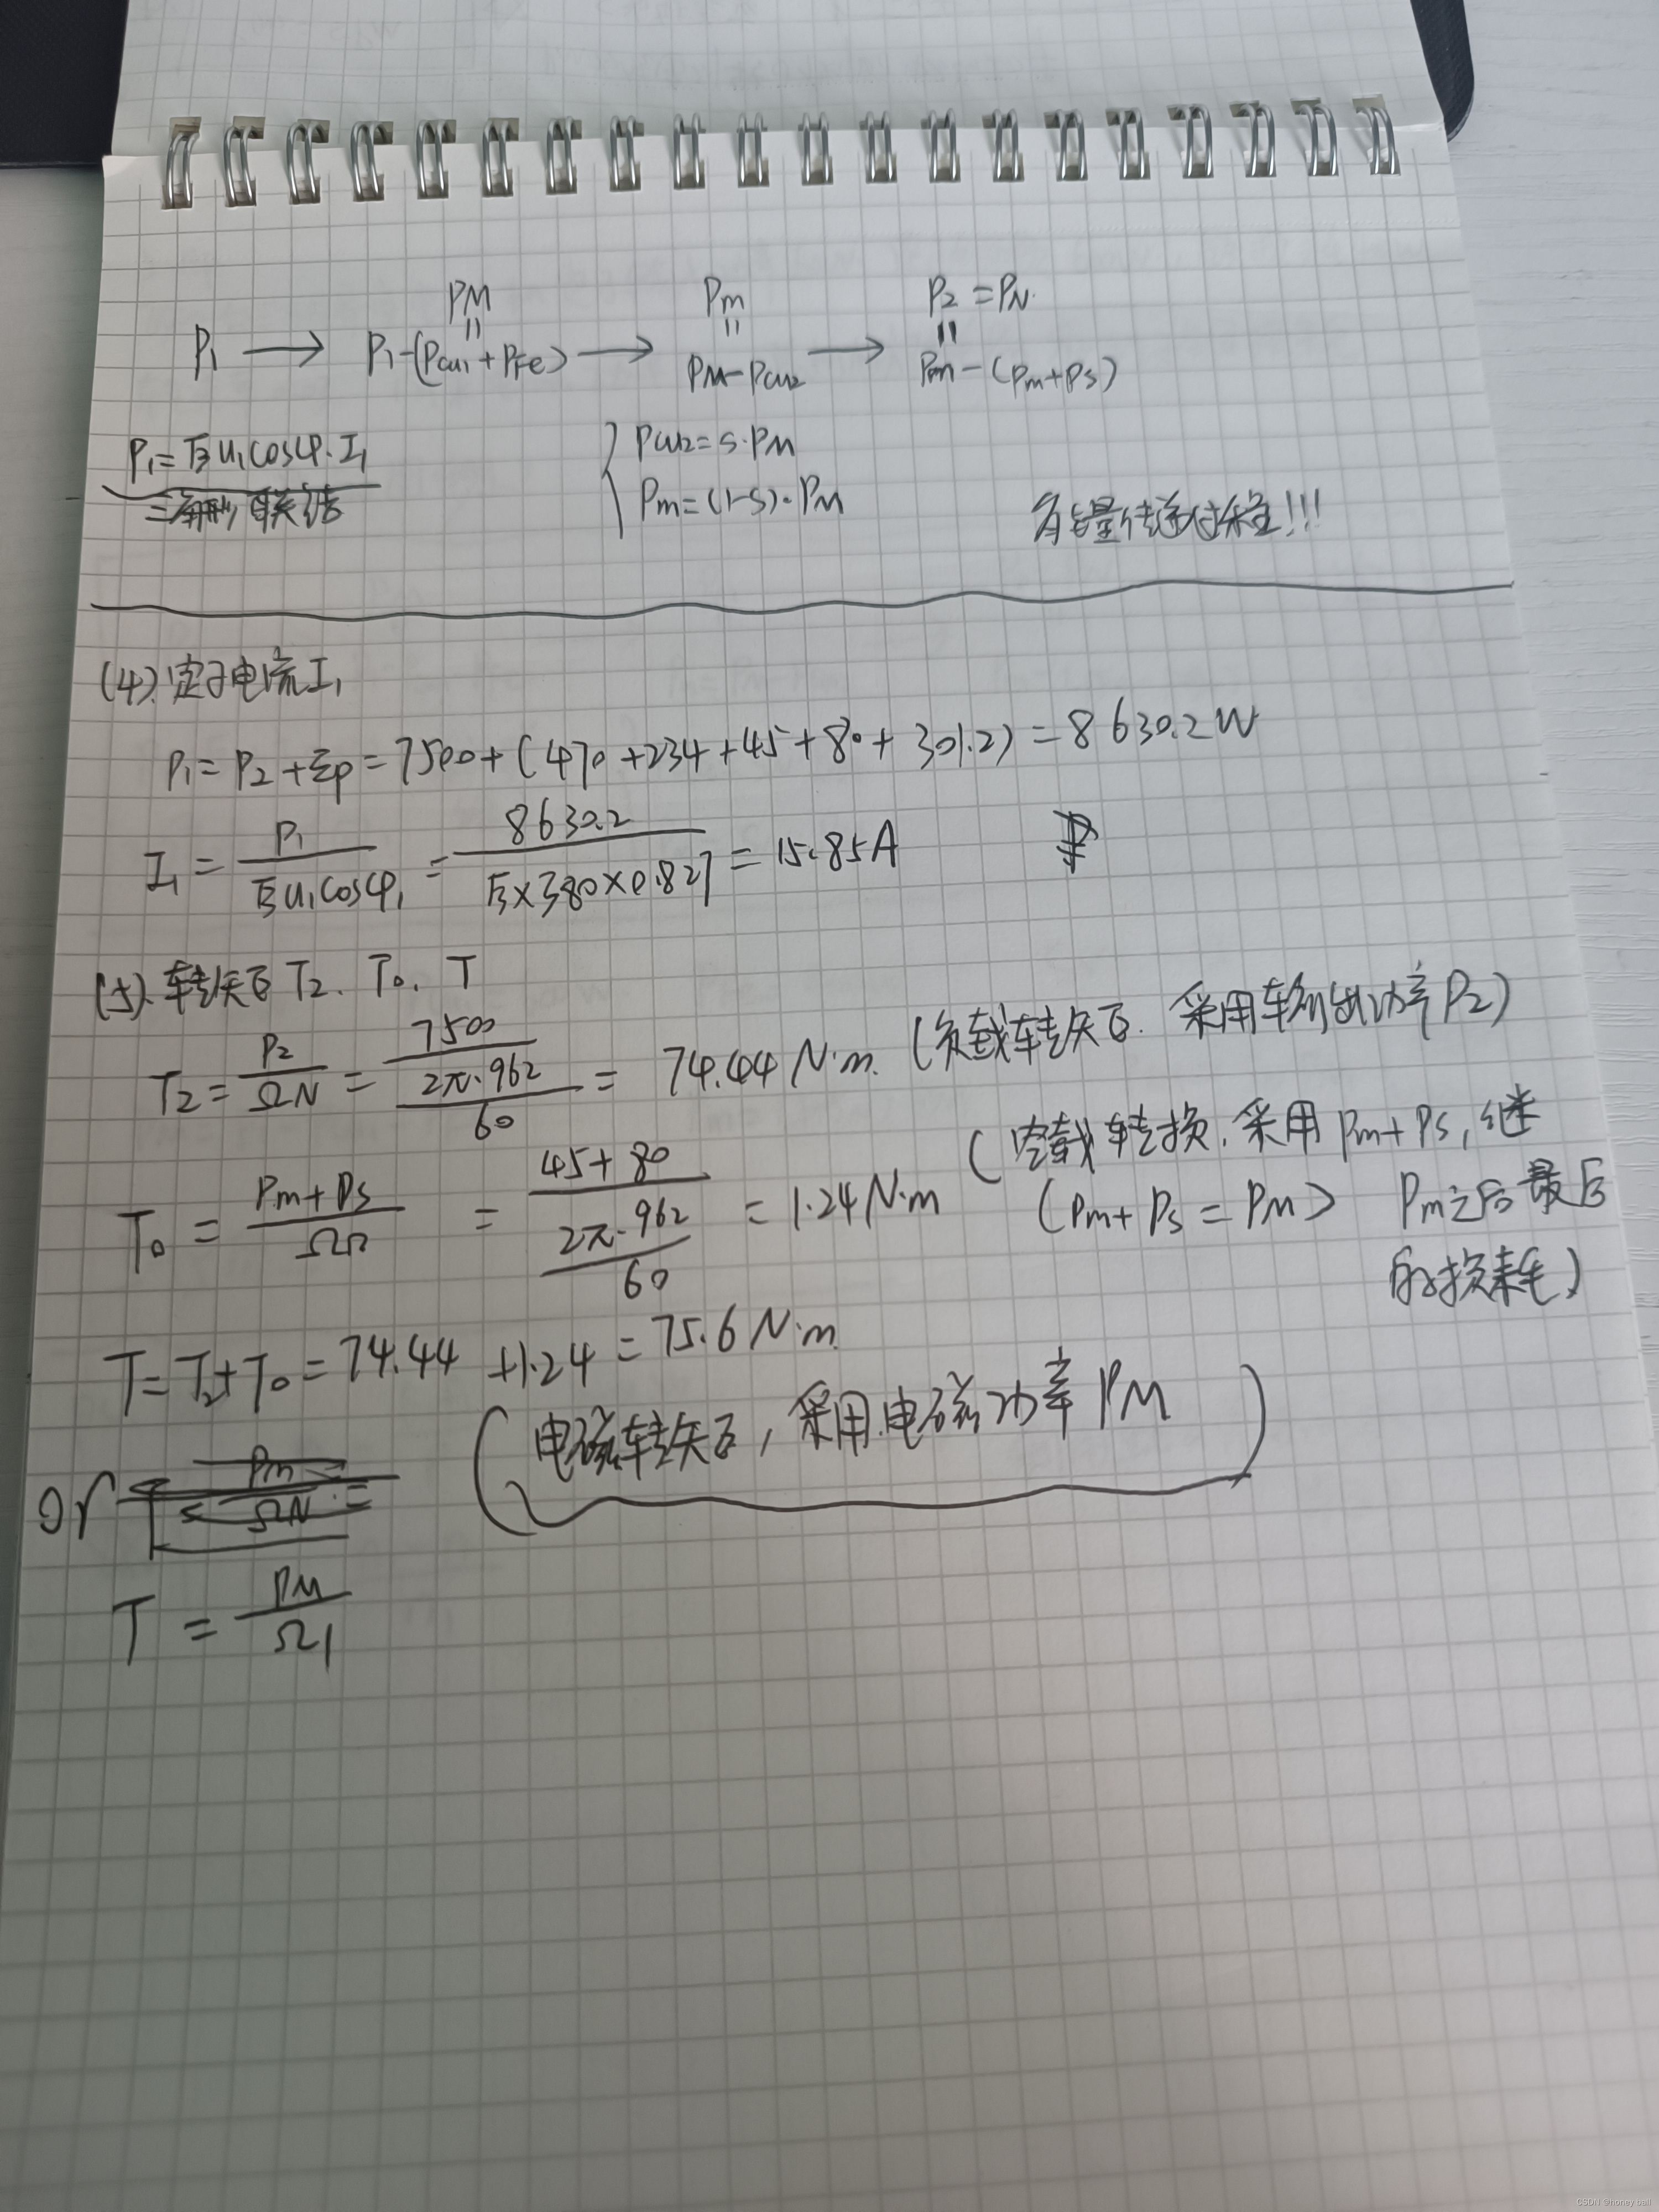 PM Pm P₂ = PN
P₁ → P₁-(Pcu₁ + PFe) → PM-Pcu₂ → Pm-(pm+ps)
P₁=√3 U₁cosφ·I₁
Pcu₂=s·PM
Pm=(1-s)·PM
能量传递过程!!!
(4).定子电流I₁
P₁= P₂ +Σp = 7500+(470+234+45+80+301.2) = 8630.2W
I₁ = P₁/(√3U₁cosφ₁) = 8630.2/(√3×380×0.827) = 15.85A
(5).转矩 T₂. T₀. T
T₂= P₂/ΩN = 7500/(2π·962/60) = 74.44 N·m. (负载转矩. 采用输出功率P₂)
T₀ = (Pm+Ps)/ΩN = (45+80)/(2π·962/60) = 1.24N·m (空载转损.采用Pm+Ps,继
(Pm+ Ps = Pm) Pm之后最后
的损耗)
T=T₂+T₀=74.44+1.24=75.6N·m
or
(电磁转矩,采用电磁功率PM)
T = PM/Ω₁
CSDN @honey ball